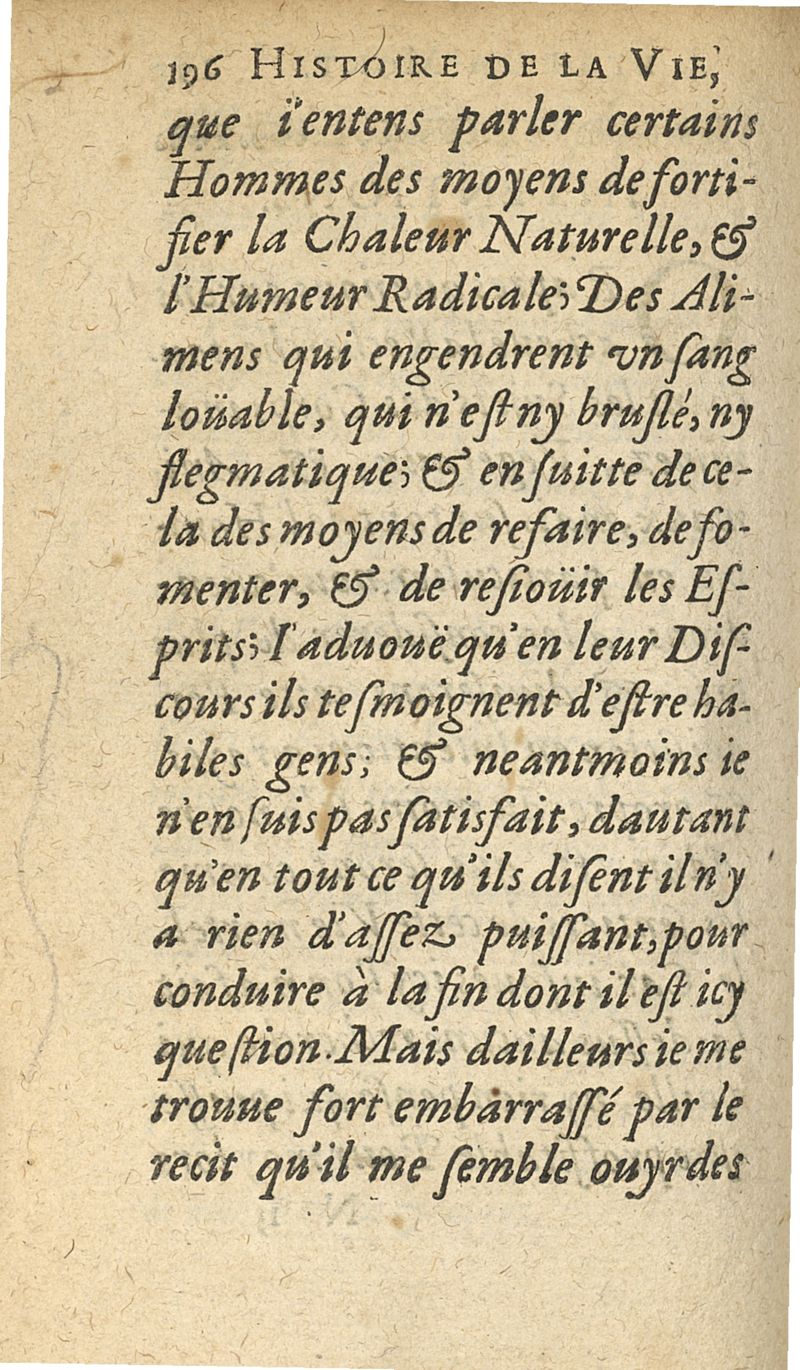 196 HISTOIRE DE LA VIE,
que i'entens parler certains
Hommes des moyens de forti-
fier la Chaleur Naturelle, &
l'Humeur Radicale; Des Ali-
mens qui engendrent vn ſang
loüable, qui n'eſt ny bruſlé, ny
flegmatique; & en ſuitte de ce-
la des moyens de refaire, de fo-
menter, & de reſioüir les Eſ-
prits; I'aduouë qu'en leur Diſ-
cours ils teſmoignent d'eſtre ha-
biles gens; & neantmoins ie
n'en ſuis pas ſatisfait, dautant
qu'en tout ce qu'ils diſent il n'y
a rien d'aſſez puiſſant, pour
conduire à la fin dont il eſt icy
queſtion. Mais dailleurs ie me
trouue fort embarraſſé par le
recit qu'il me ſemble ouyr des